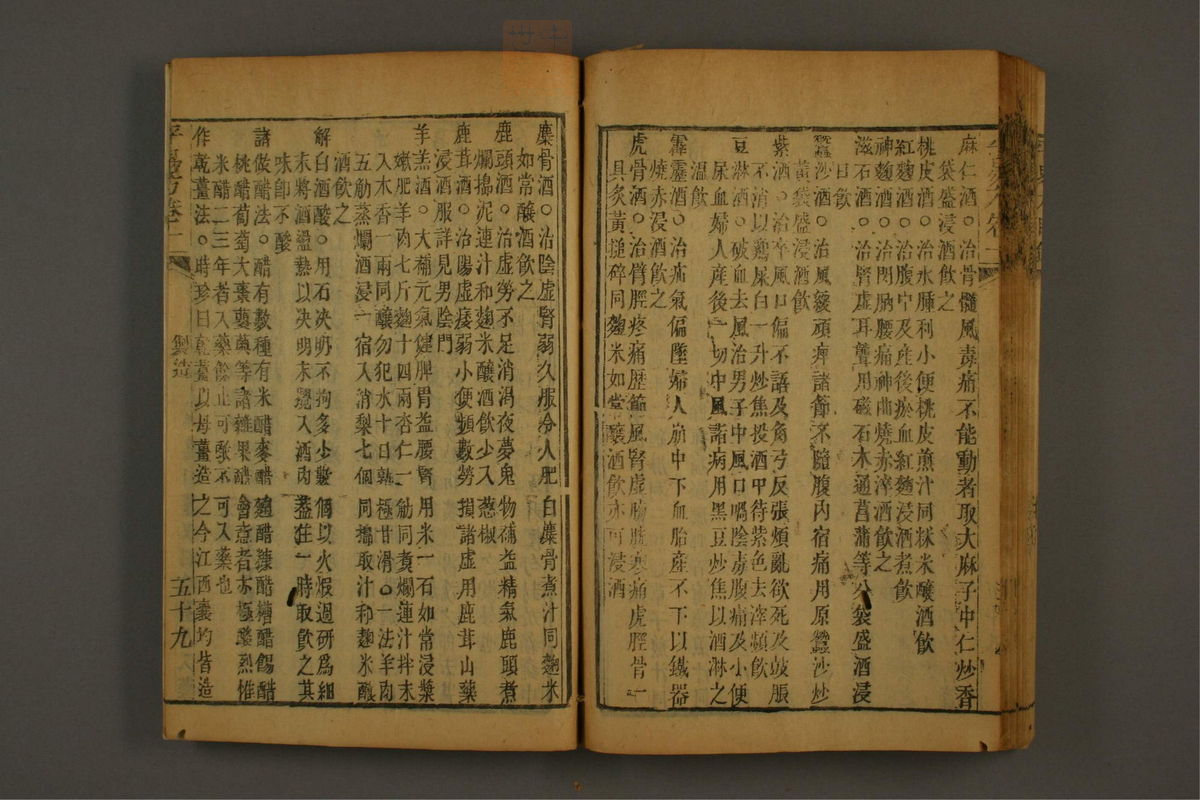 麻仁酒○治骨髓風毒痛不能動者取大麻子中仁炒香
袋盛浸酒飲之
桃皮酒○治水腫利小便桃皮煎汁同秫米釀酒飲
紅麴酒○治腹中及産後瘀血紅麴浸酒煮飲
神麴酒○治閃肭腰痛神曲燒赤淬酒飲之
滋石酒○治腎虛耳聾用磁石木通菖蒲等分袋盛酒浸
日飲
蠶沙酒○治風緩頑痺諸節不隨腹內宿痛用原蠶沙炒
黃袋盛浸酒飲
紫酒○治卒風口偏不語及角弓反張煩亂欲死及鼓脹
不消以鷄屎白一升炒焦投酒中待紫色去滓頻飲
豆淋酒○破血去風治男子中風口喎陰毒腹痛及小便
尿血婦人産後一切中風諸病用黑豆炒焦以酒淋之
溫飲
霹靂酒○治疝氣偏墜婦人崩中下血胎産不下以鐵器
燒赤浸酒飲之
虎骨酒○治臂脛疼痛歷節風腎虛膀胱寒痛虎脛骨一
具炙黃搥碎同麴米如常釀酒飲亦可浸酒
麋骨酒○治陰虛腎弱久服令人肥白麋骨煮汁同麴米
如常釀酒飲之
鹿頭酒○治虛勞不足消渴夜夢鬼物補益精氣鹿頭煮
爛搗泥連汁和麴米釀酒飲少入葱椒
鹿茸酒○治陽虛痿弱小便頻數勞損諸虛用鹿茸山藥
浸酒服詳見男陰門
羊羔酒○大補元氣健脾胃益腰腎用米一石如常浸漿
嫩肥羊肉七斤麴十四兩杏仁一觔同煑爛連汁拌末
入木香一兩同釀勿犯水十日熟極甘滑○一法羊肉
五觔蒸爛酒浸一宿入消梨七個同搗取汁和麴米釀
酒飲之
解白酒酸○用石决明不拘多少數個以火煆過研爲細
末將酒盪熱以决明末攪入酒內葢住一時取飲之其
味卽不酸
諸做醋法○醋有數種有米醋麥醋麯醋糠醋糟醋餳醋
桃醋葡萄大棗蘡薁等諸雜果醋會意者亦極釅烈惟
米醋二三年者入藥餘止可啖不可入藥也
作乾薑法○時珍曰乾薑以母薑造之今江西襄均皆造
製造
五十九